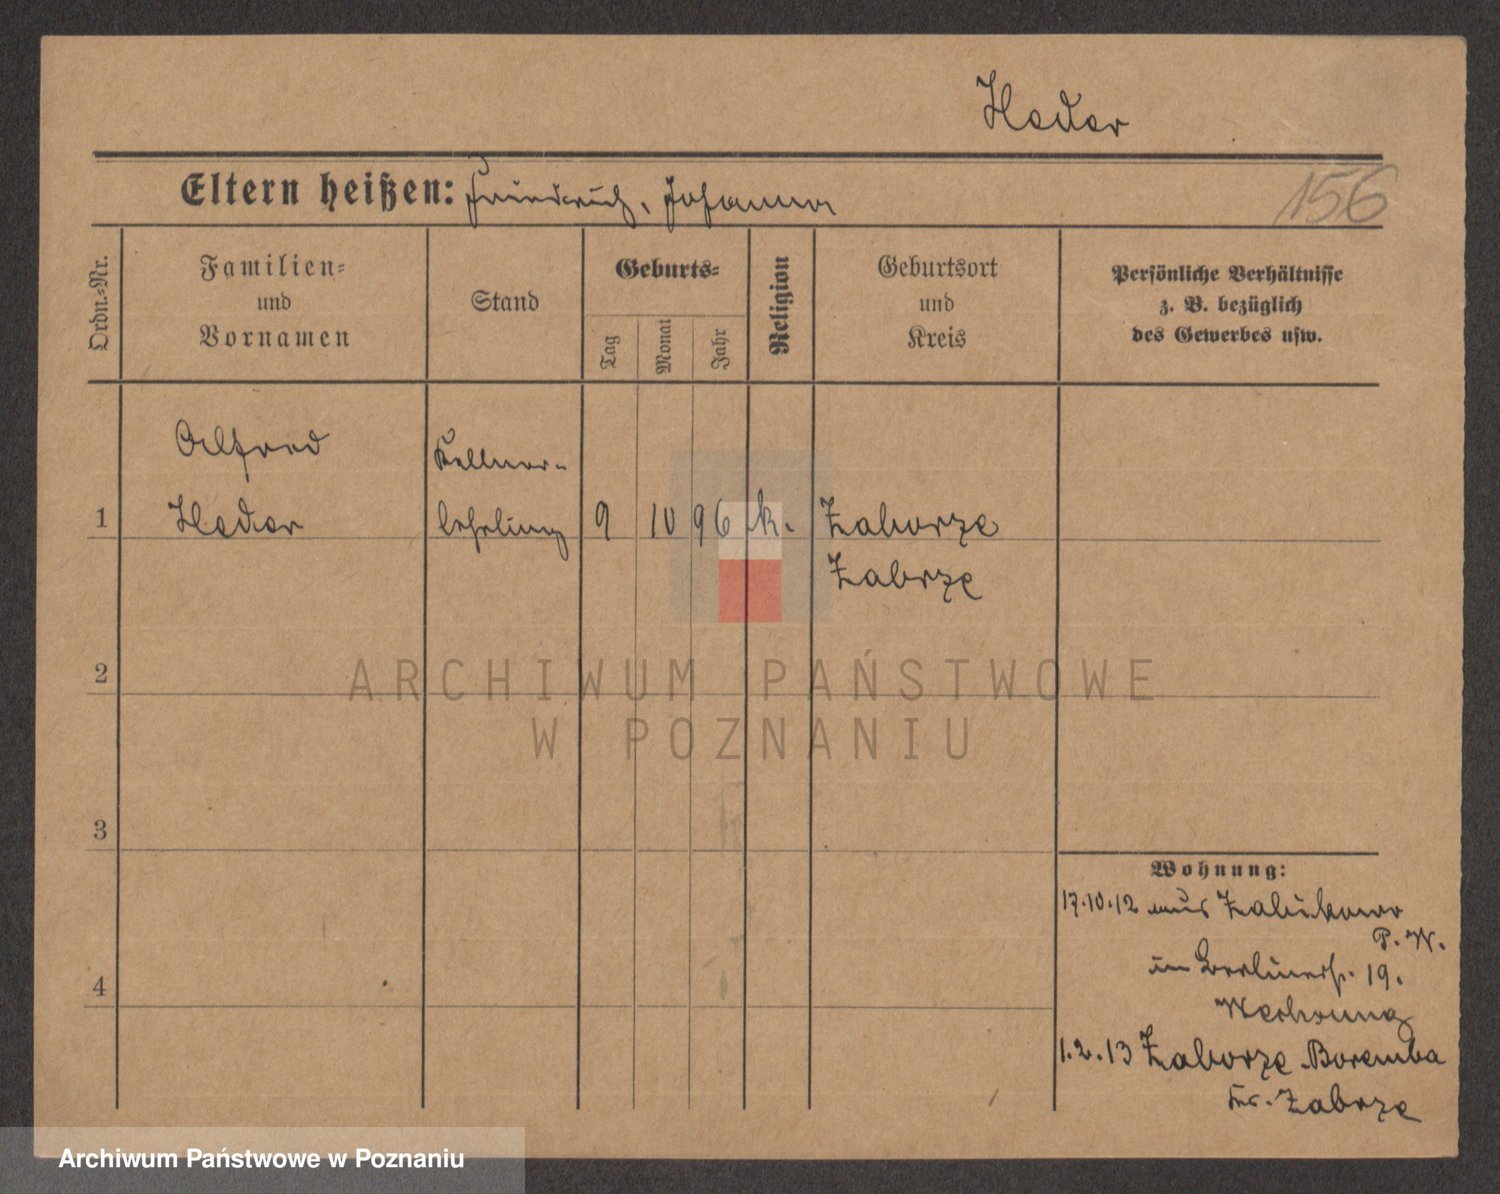 Heder
Eltern heißen: Friedrich, Johanna
156
Ordn.-Nr.
Familien-
und
Vornamen
Stand
Geburts-
Tag
Monat
Jahr
Religion
Geburtsort
und
Kreis
Persönliche Verhältnisse
z. B. bezüglich
des Gewerbes usw.
1
Alfred
Heder
Kellner-
lehrling
9 10 96 k.
Zaborze
Zabrze
2
3
4
Wohnung:
17.10.12 aus Zabikowo
P. W.
in Berlinerstr. 19.
1.2.13 Zaborze Boremba
Kr. Zabrze
ARCHIWUM PAŃSTWOWE
W POZNANIU
Archiwum Państwowe w Poznaniu